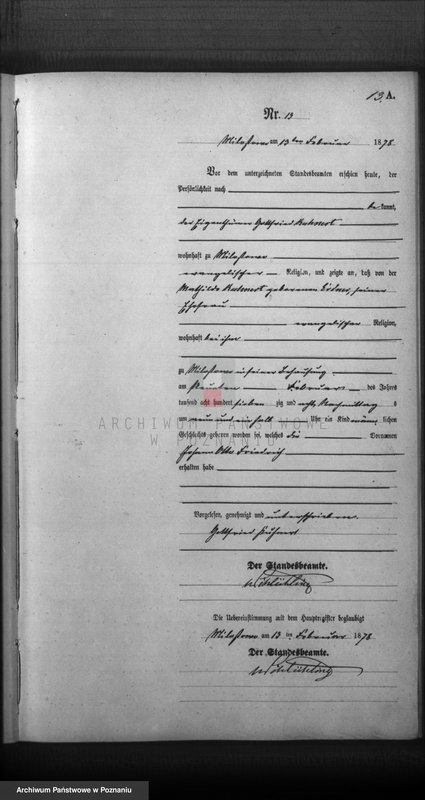 13. A.
Nr. 13
am 13ten Februar 1878.
Vor dem unterzeichneten Standesbeamten erschien heute, der
Persönlichkeit nach
be kannt,
der Eigenthümer Gottfried
wohnhaft zu
evangelischer Religion, und zeigte an, daß von der
Mathilde geborenen seiner
Ehefrau
evangelischer Religion,
wohnhaft bei ihm
zu in seiner Behausung
am neunten Februar des Jahrs
tausend acht hundert sieben zig und acht Nachmittag s
um neun und einhalb Uhr ein Kind männ lichen
Geschlechts geboren worden sei, welches die Vornamen
Johann Otto Friedrich
erhalten habe
Vorgelesen, genehmigt und unterschrieben.
Gottfried
Der Standesbeamte.
Die Uebereinstimmung mit dem Hauptregister beglaubigt
am 13 ten Februar 1878
Der Standesbeamte.
ARCHIWUM PAŃSTWOWE
W POZNANIU
Archiwum Państwowe w Poznaniu